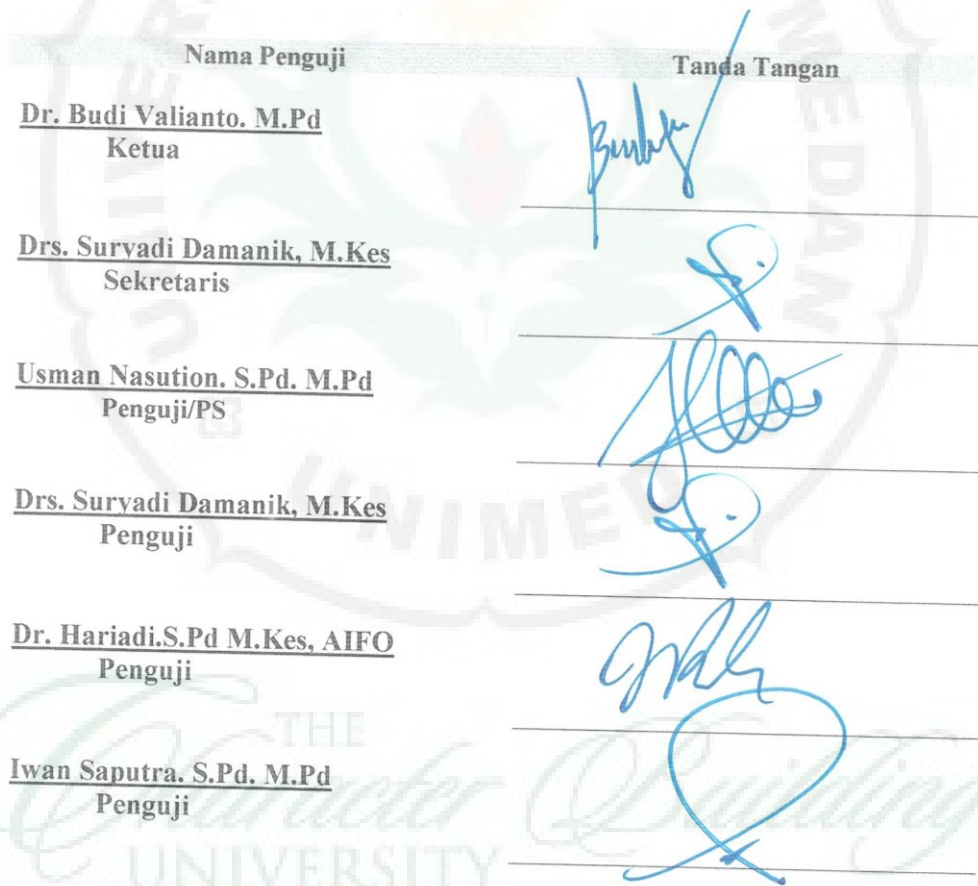 Nama Penguji Tanda Tangan
Dr. Budi Valianto. M.Pd
Ketua
Drs. Suryadi Damanik, M.Kes
Sekretaris
Usman Nasution. S.Pd. M.Pd
Penguji/PS
Drs. Suryadi Damanik, M.Kes
Penguji
Dr. Hariadi.S.Pd M.Kes, AIFO
Penguji
Iwan Saputra. S.Pd. M.Pd
Penguji
UNIMED
MEDAN
THE
Character Building
UNIVERSITY